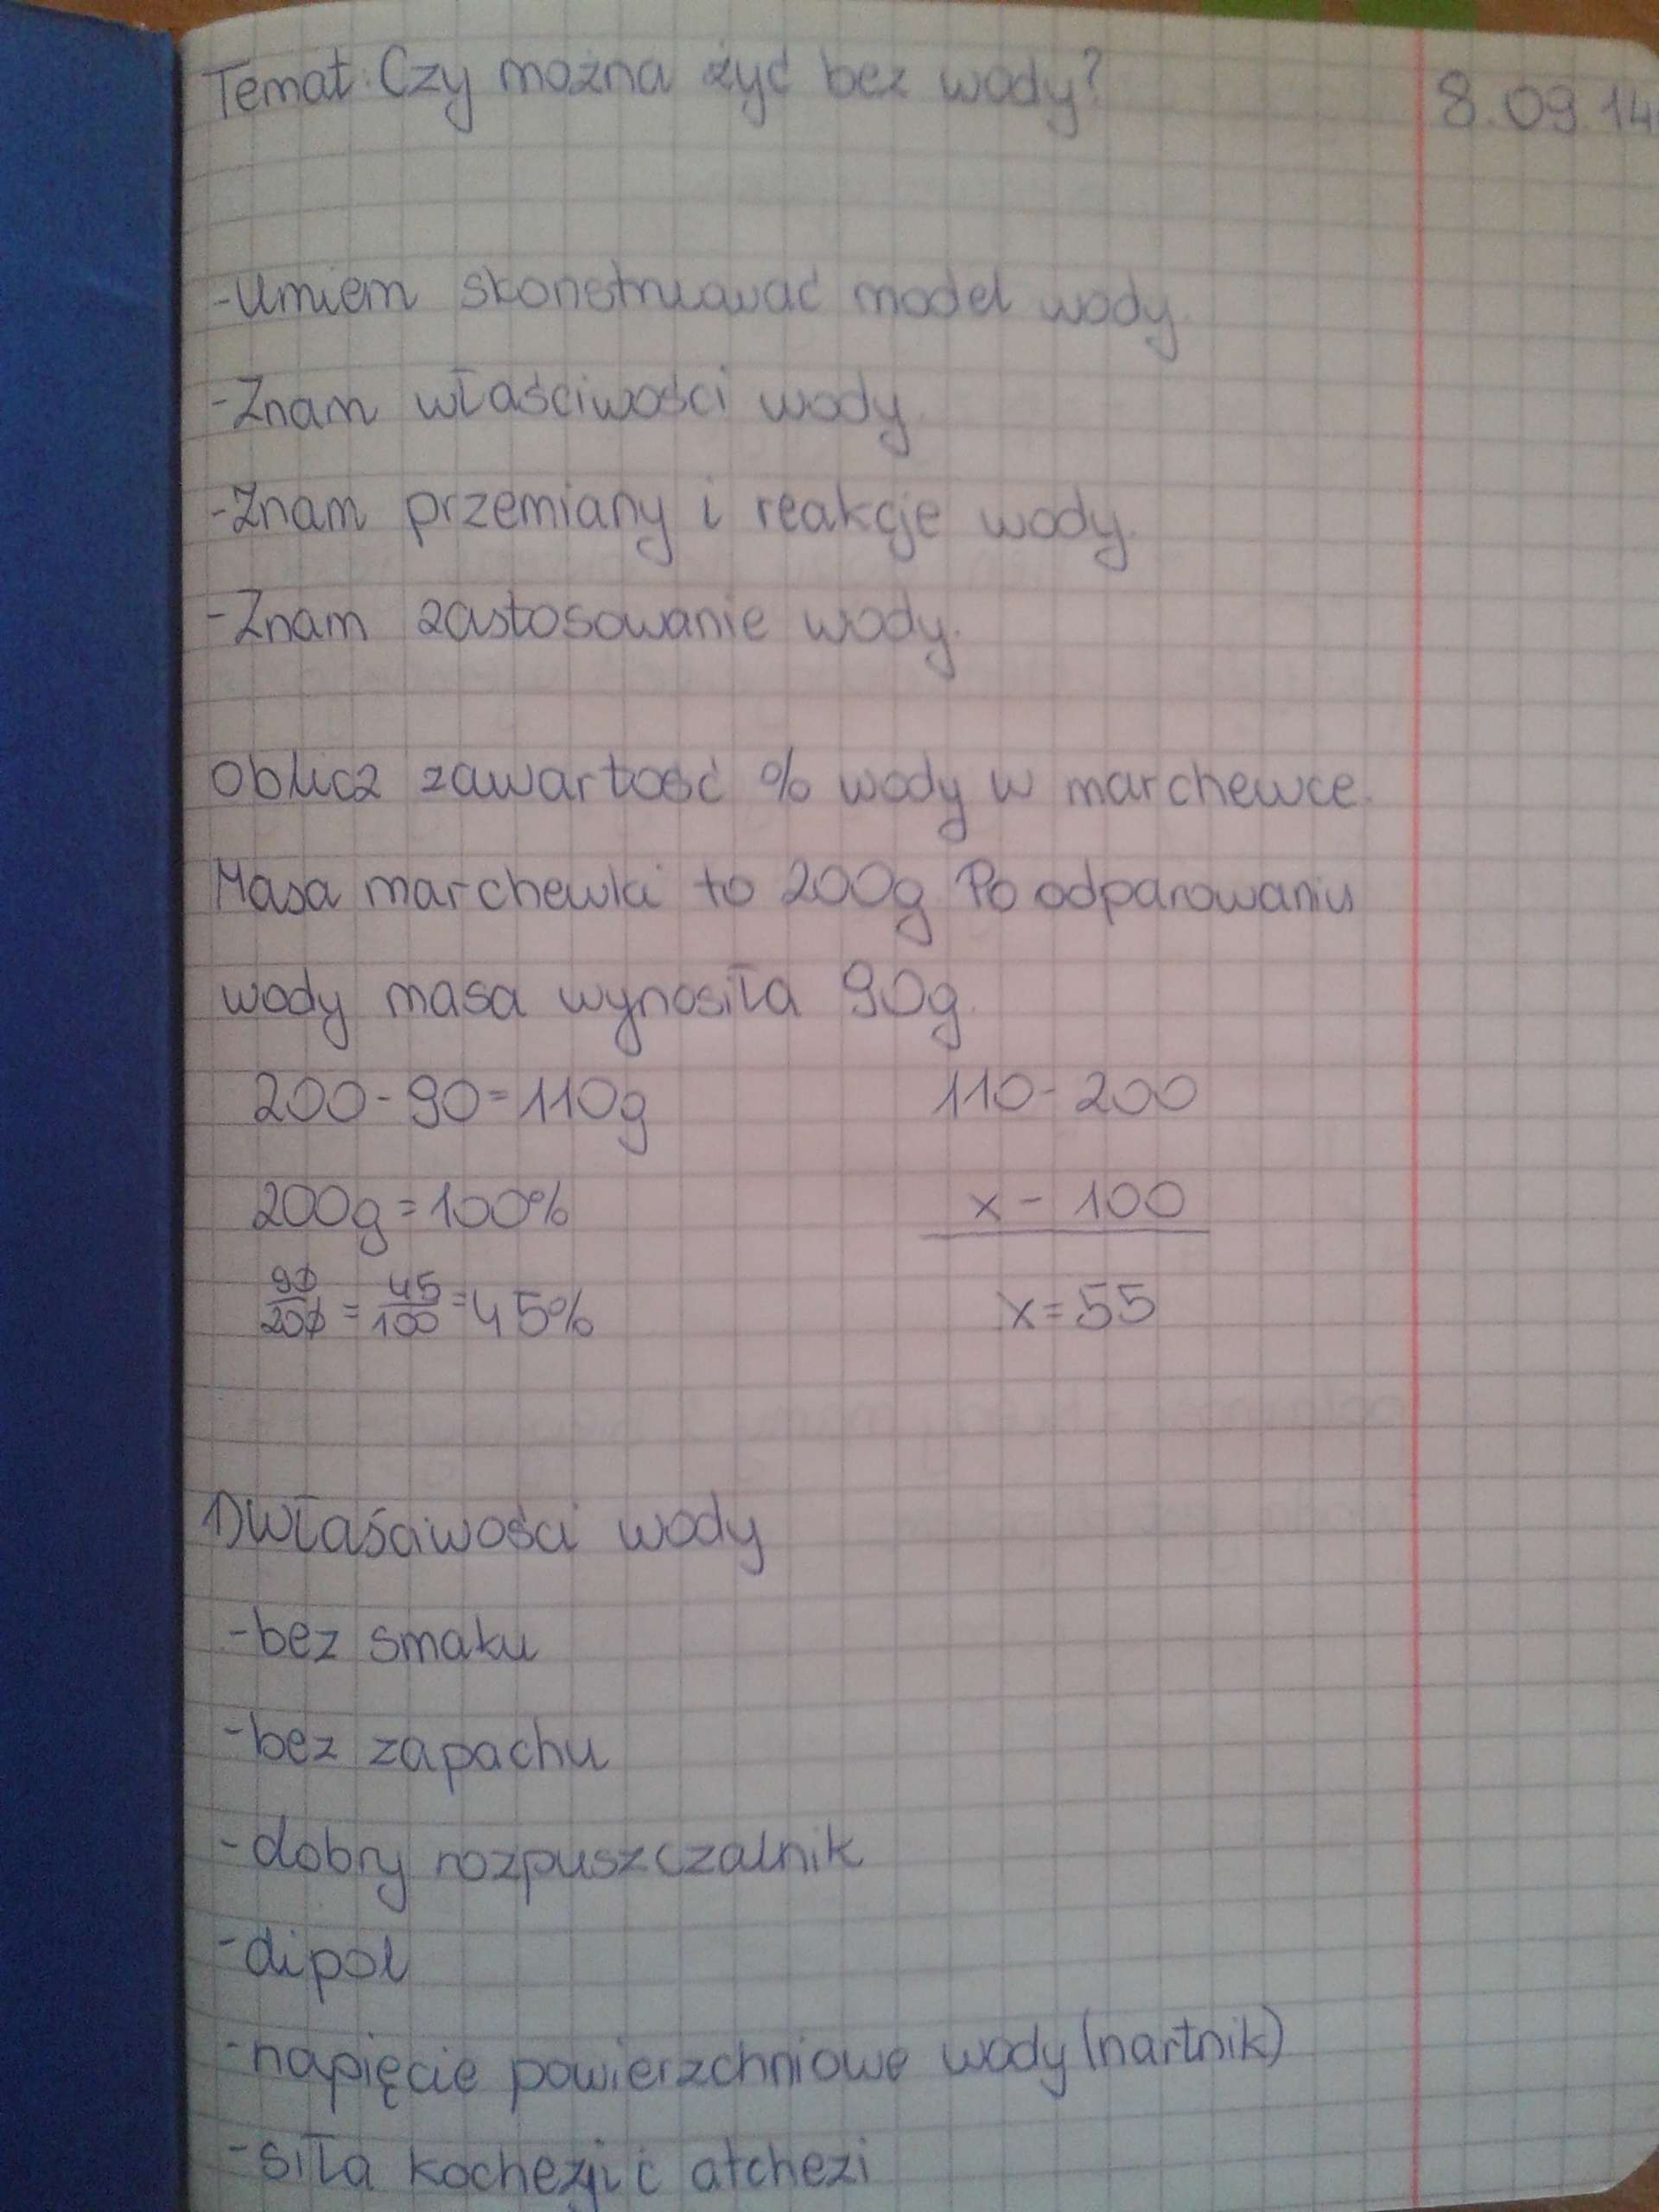 Temat: Czy można żyć bez wody? 8.09.14
-Umiem skonstruować model wody.
-Znam właściwości wody.
-Znam przemiany i reakcje wody.
-Znam zastosowanie wody.
Oblicz zawartość % wody w marchewce.
Masa marchewki to 200g. Po odparowaniu
wody masa wynosiła 90g.
200-90=110g 110-200
200g=100% x-100
90/200=45/100=45% x=55
1)Właściwości wody
-bez smaku
-bez zapachu
-dobry rozpuszczalnik
-dipol
-napięcie powierzchniowe wody (nartnik)
-siła kochezji i atchezi